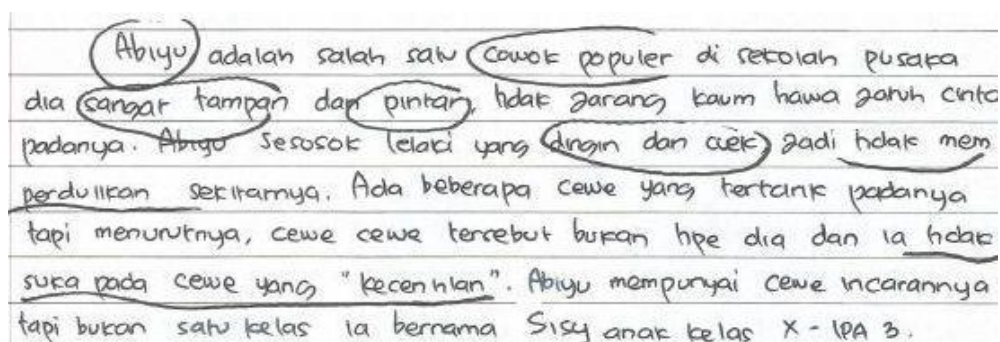 Abiyu adalah salah satu cowok populer di sekolah pusaka
dia sangat tampan dan pintar, tidak jarang kaum hawa jatuh cinta
padanya. Abiyu sesosok lelaki yang dingin dan cuek jadi tidak mem
perdulikan sekitarnya. Ada beberapa cewe yang tertarik padanya
tapi menurutnya, cewe cewe tersebut bukan tipe dia dan ia tidak
suka pada cewe yang "kecentilan". Abiyu mempunyai cewe incarannya
tapi bukan satu kelas ia bernama Sisy anak kelas X - IPA 3.